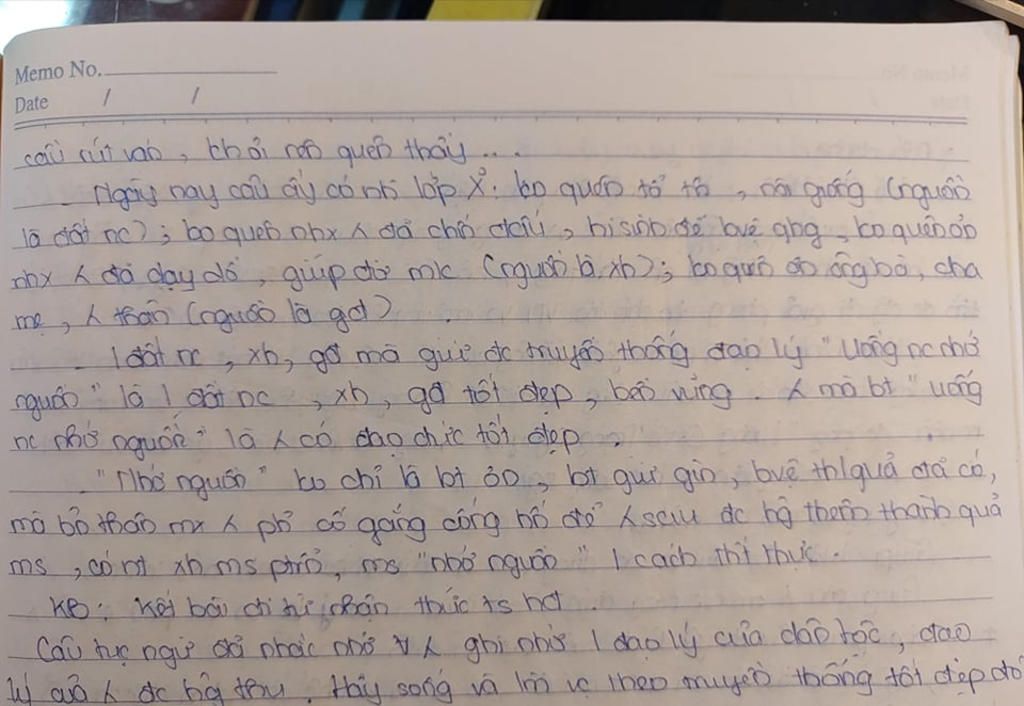 Memo No.
Date / /
cầu rút ván, khỏi rên quên thầy...
Ngày nay câu ấy có nh lớp X°: ko quên tổ tô, nòi giống (nguồn
là đất nc); ko quên nhx λ đã chiến đấu, hi sinh để bvệ qhg, ko quên ơn
nhx λ đã dạy dỗ, giúp đỡ mk (nguồn là xh); ko quên ơn ông bà, cha
mẹ, λ thân (nguồn là gđ)
1 đất nc, xh, gđ mà giữ đc truyền thống đạo lý "Uống nc nhớ
nguồn" là 1 đất nc, xh, gđ tốt đẹp, bền vững. λ mà bt "uống
nc nhớ nguồn" là λ có đạo đức tốt đẹp.
"Nhớ nguồn" ko chỉ là bt ơn, bt giữ gìn, bvệ th'quả đã có,
mà bản thân mx λ phả cố gắng cống hiến để λ sau đc hg thêm thành quả
ms, có nt xh ms ptriển, ms "nhớ nguồn" 1 cách thiết thực.
KB: Kết bài đi từ nhận thức ts hđ.
Câu tục ngữ đã nhắc nhở ∀ λ ghi nhớ 1 đạo lý của dân tộc, đạo
lý của λ đc hg thụ. Hãy sống và làm vc theo truyền thống tốt đẹp đó